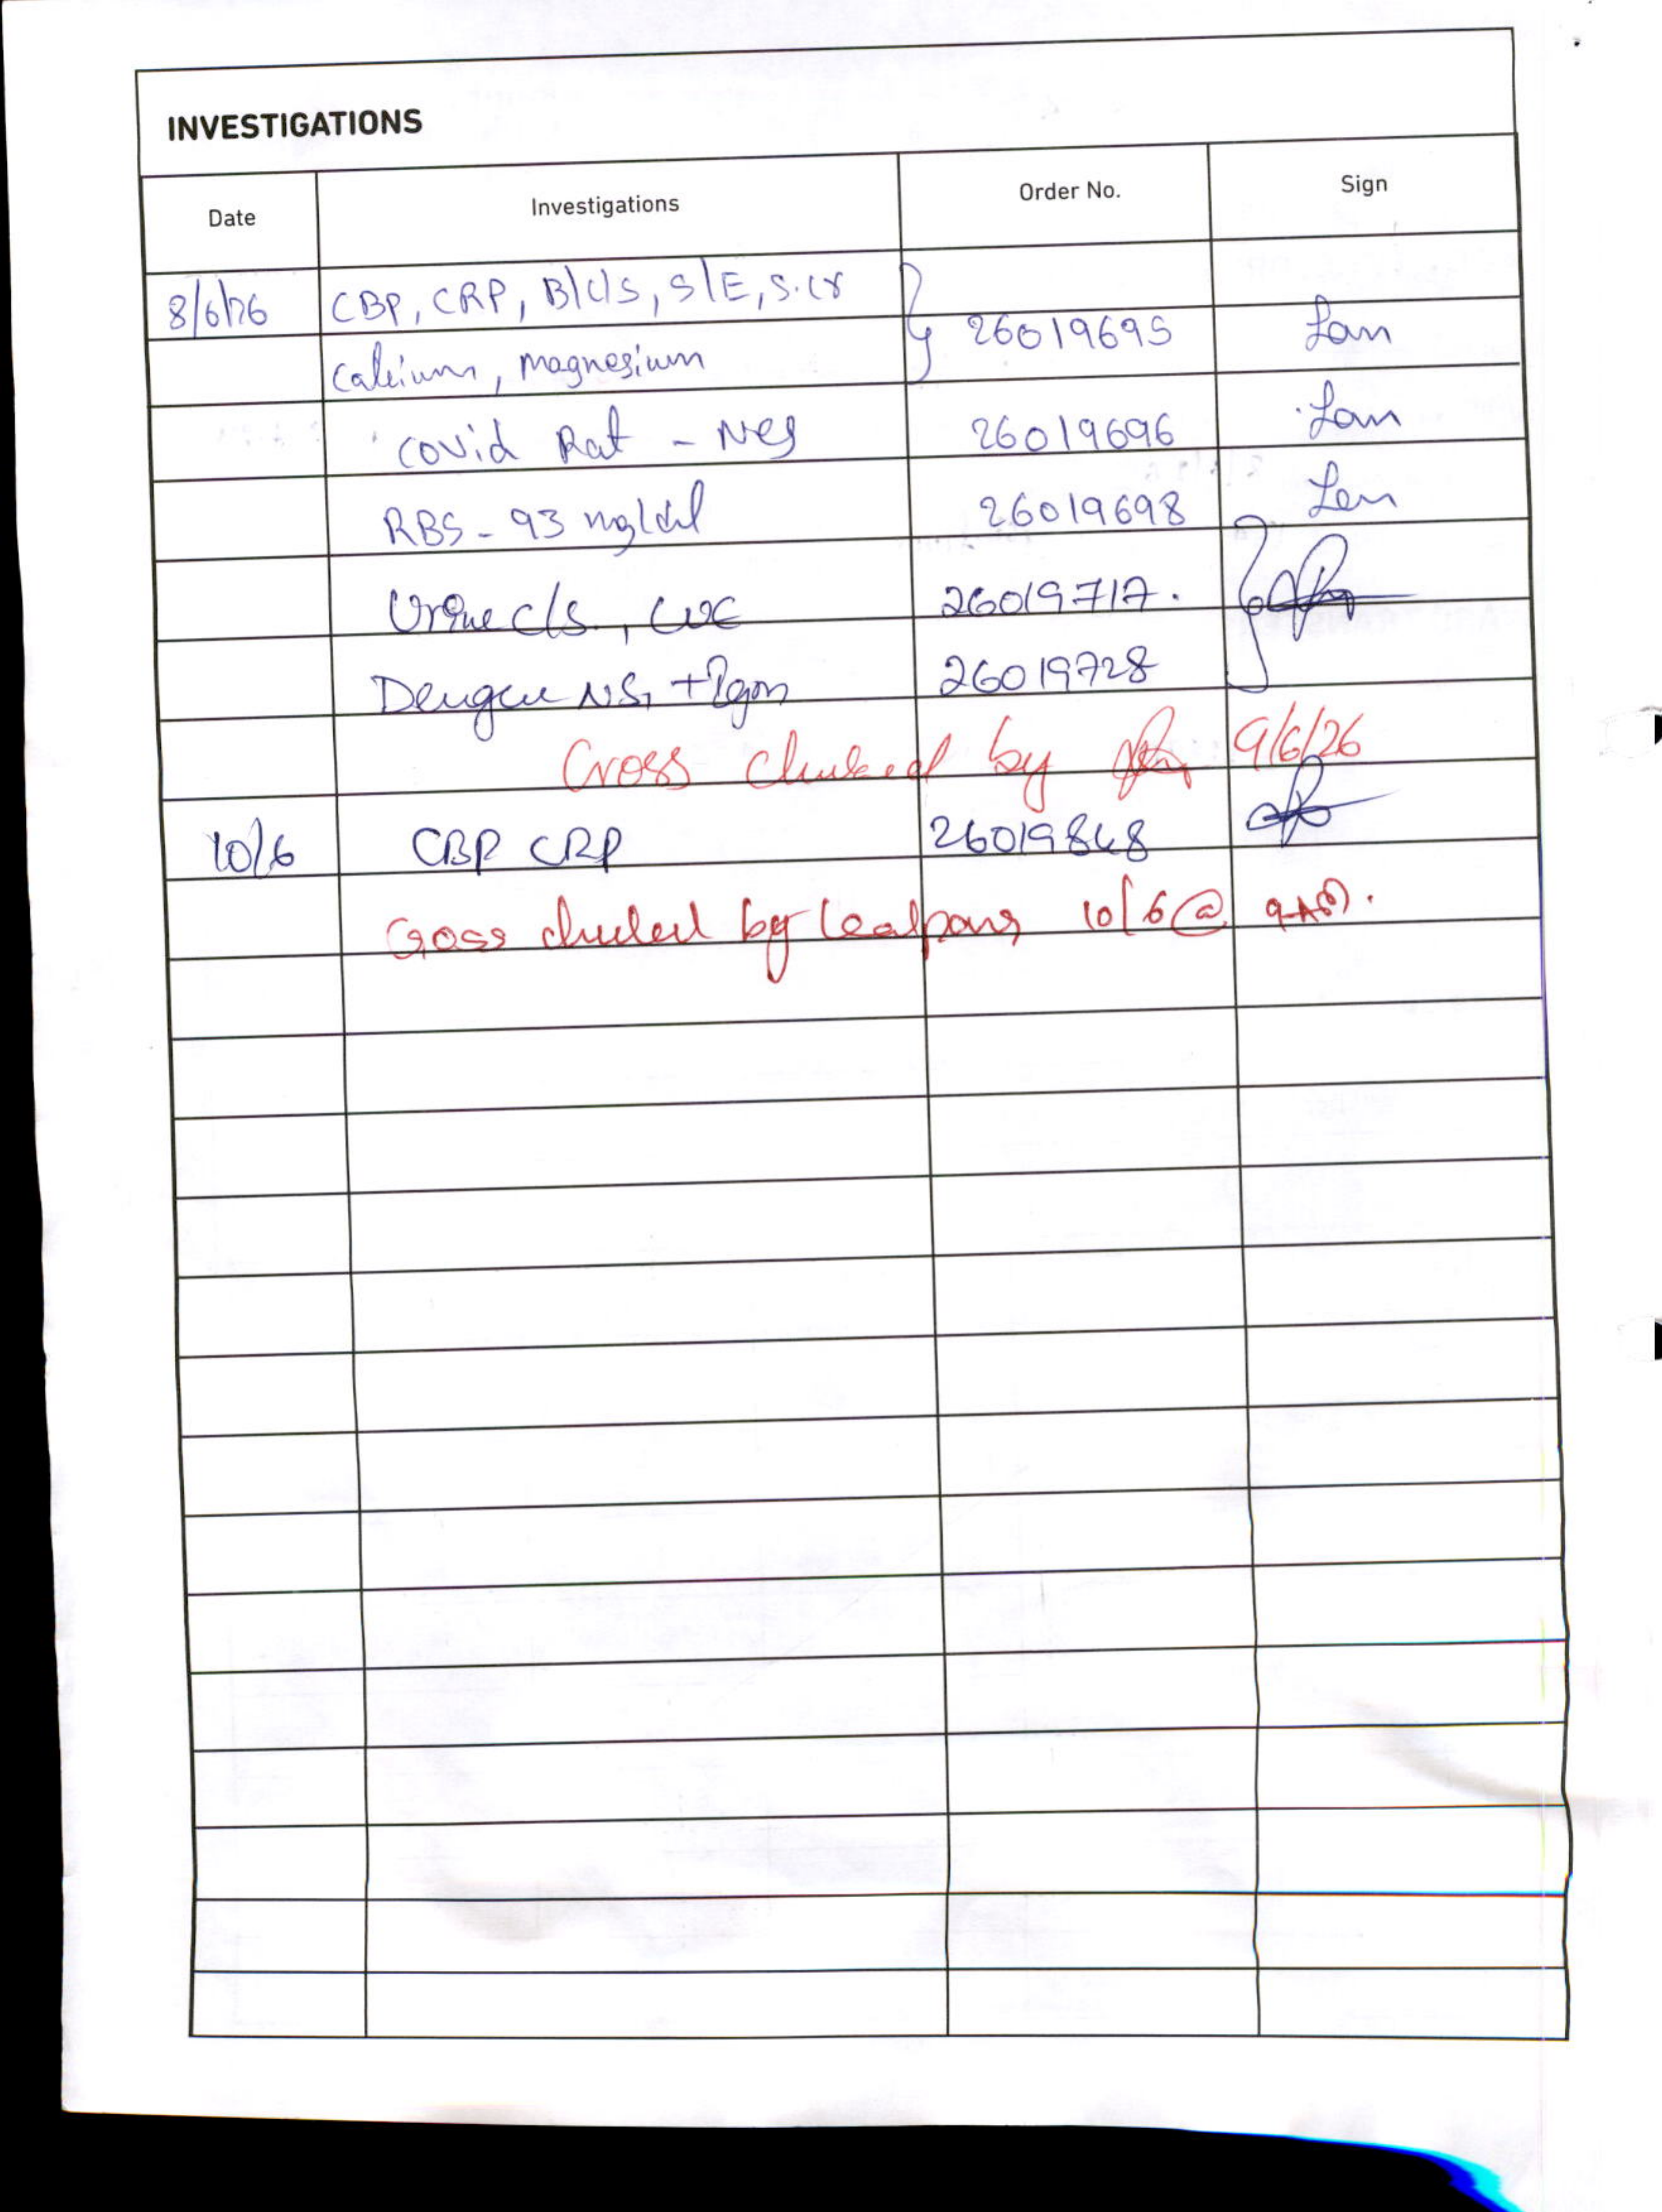 INVESTIGATIONS
Date Investigations Order No. Sign
8/6/26 CBP, CRP, B/C/S, S/E, S.Cr
Calcium, Magnesium 26019695
Covid Rat - Neg 26019696
RBS - 93 mg/dl 26019698
Urine c/s., CUE 26019717.
Dengue NS1 + Igm 26019728
Cross checked by 9/6/26
10/6 CBP CRP 26019848
Cross checked by 10/6 @